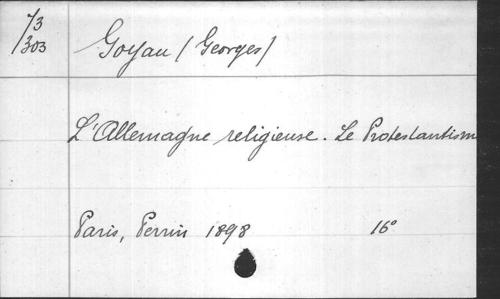 73
/303
Goyau (Georges)
L'Allemagne religieuse. Le Protestantism
Paris, Perrin 1898 16°